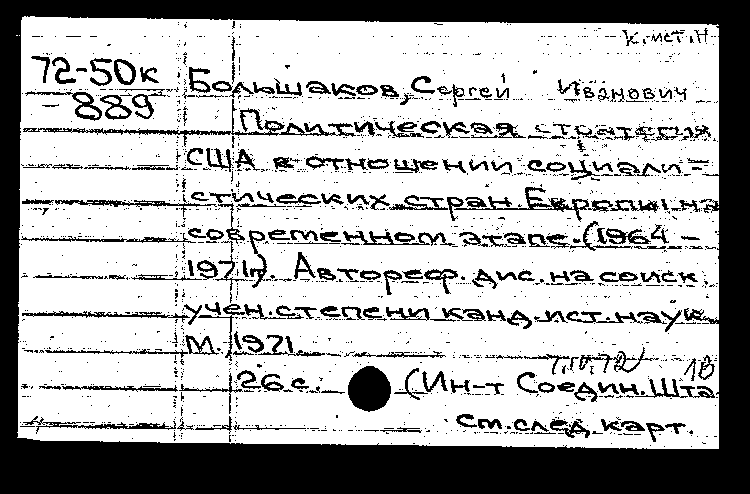 к.ист.н
72-50к
-889
Большаков, Сергей Иванович
Политическая стратегия
США в отношении социали-
стических стран Европы на
современном этапе. (1964 -
1971г). Автореф. дис. на соиск.
учен. степени канд. ист. наук.
М., 1971.
26 с. (Ин-т Соедин. Шта
См. след. карт.